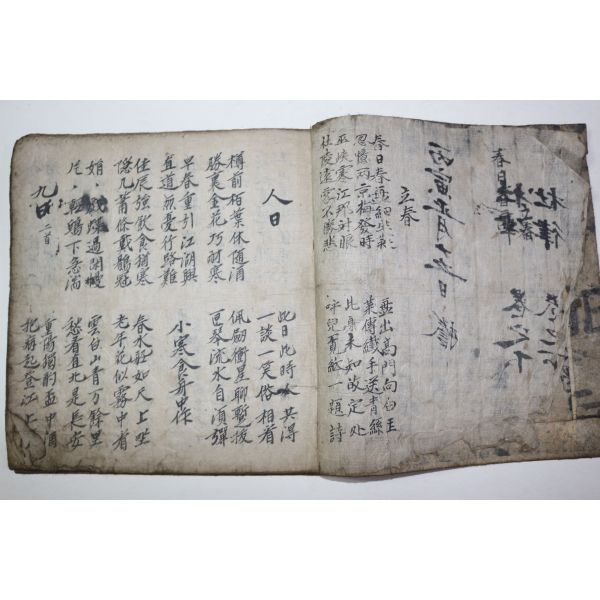 杜律 卷之下
春日春
丙寅正月
立春
春日春盤細生菜 盤出高門向白玉
忽憶兩京梅發時 菜傳纖手送青絲
巫峽寒江那對眼 此身未知故定処
杜陵遠客不勝悲 呼兒覓紙一題詩
人日
此日此時人共得
一談一笑俗相看
樽前柏葉休隨酒
勝裏金花巧耐寒
佩劔衝星聊暫拔
匣琴流水自須彈
早春重引江湖興
直道無憂行路難
小寒食舟中作
佳辰強飲食猶寒
隱几蕭條戴鶡冠
春水船如天上坐
老年花似霧中看
娟〻戲蝶過閑幔
片〻輕鷗下急湍
雲白山青万餘里
愁看直北是長安
九日 二首
重陽獨酌盃中酒
抱病起登江上